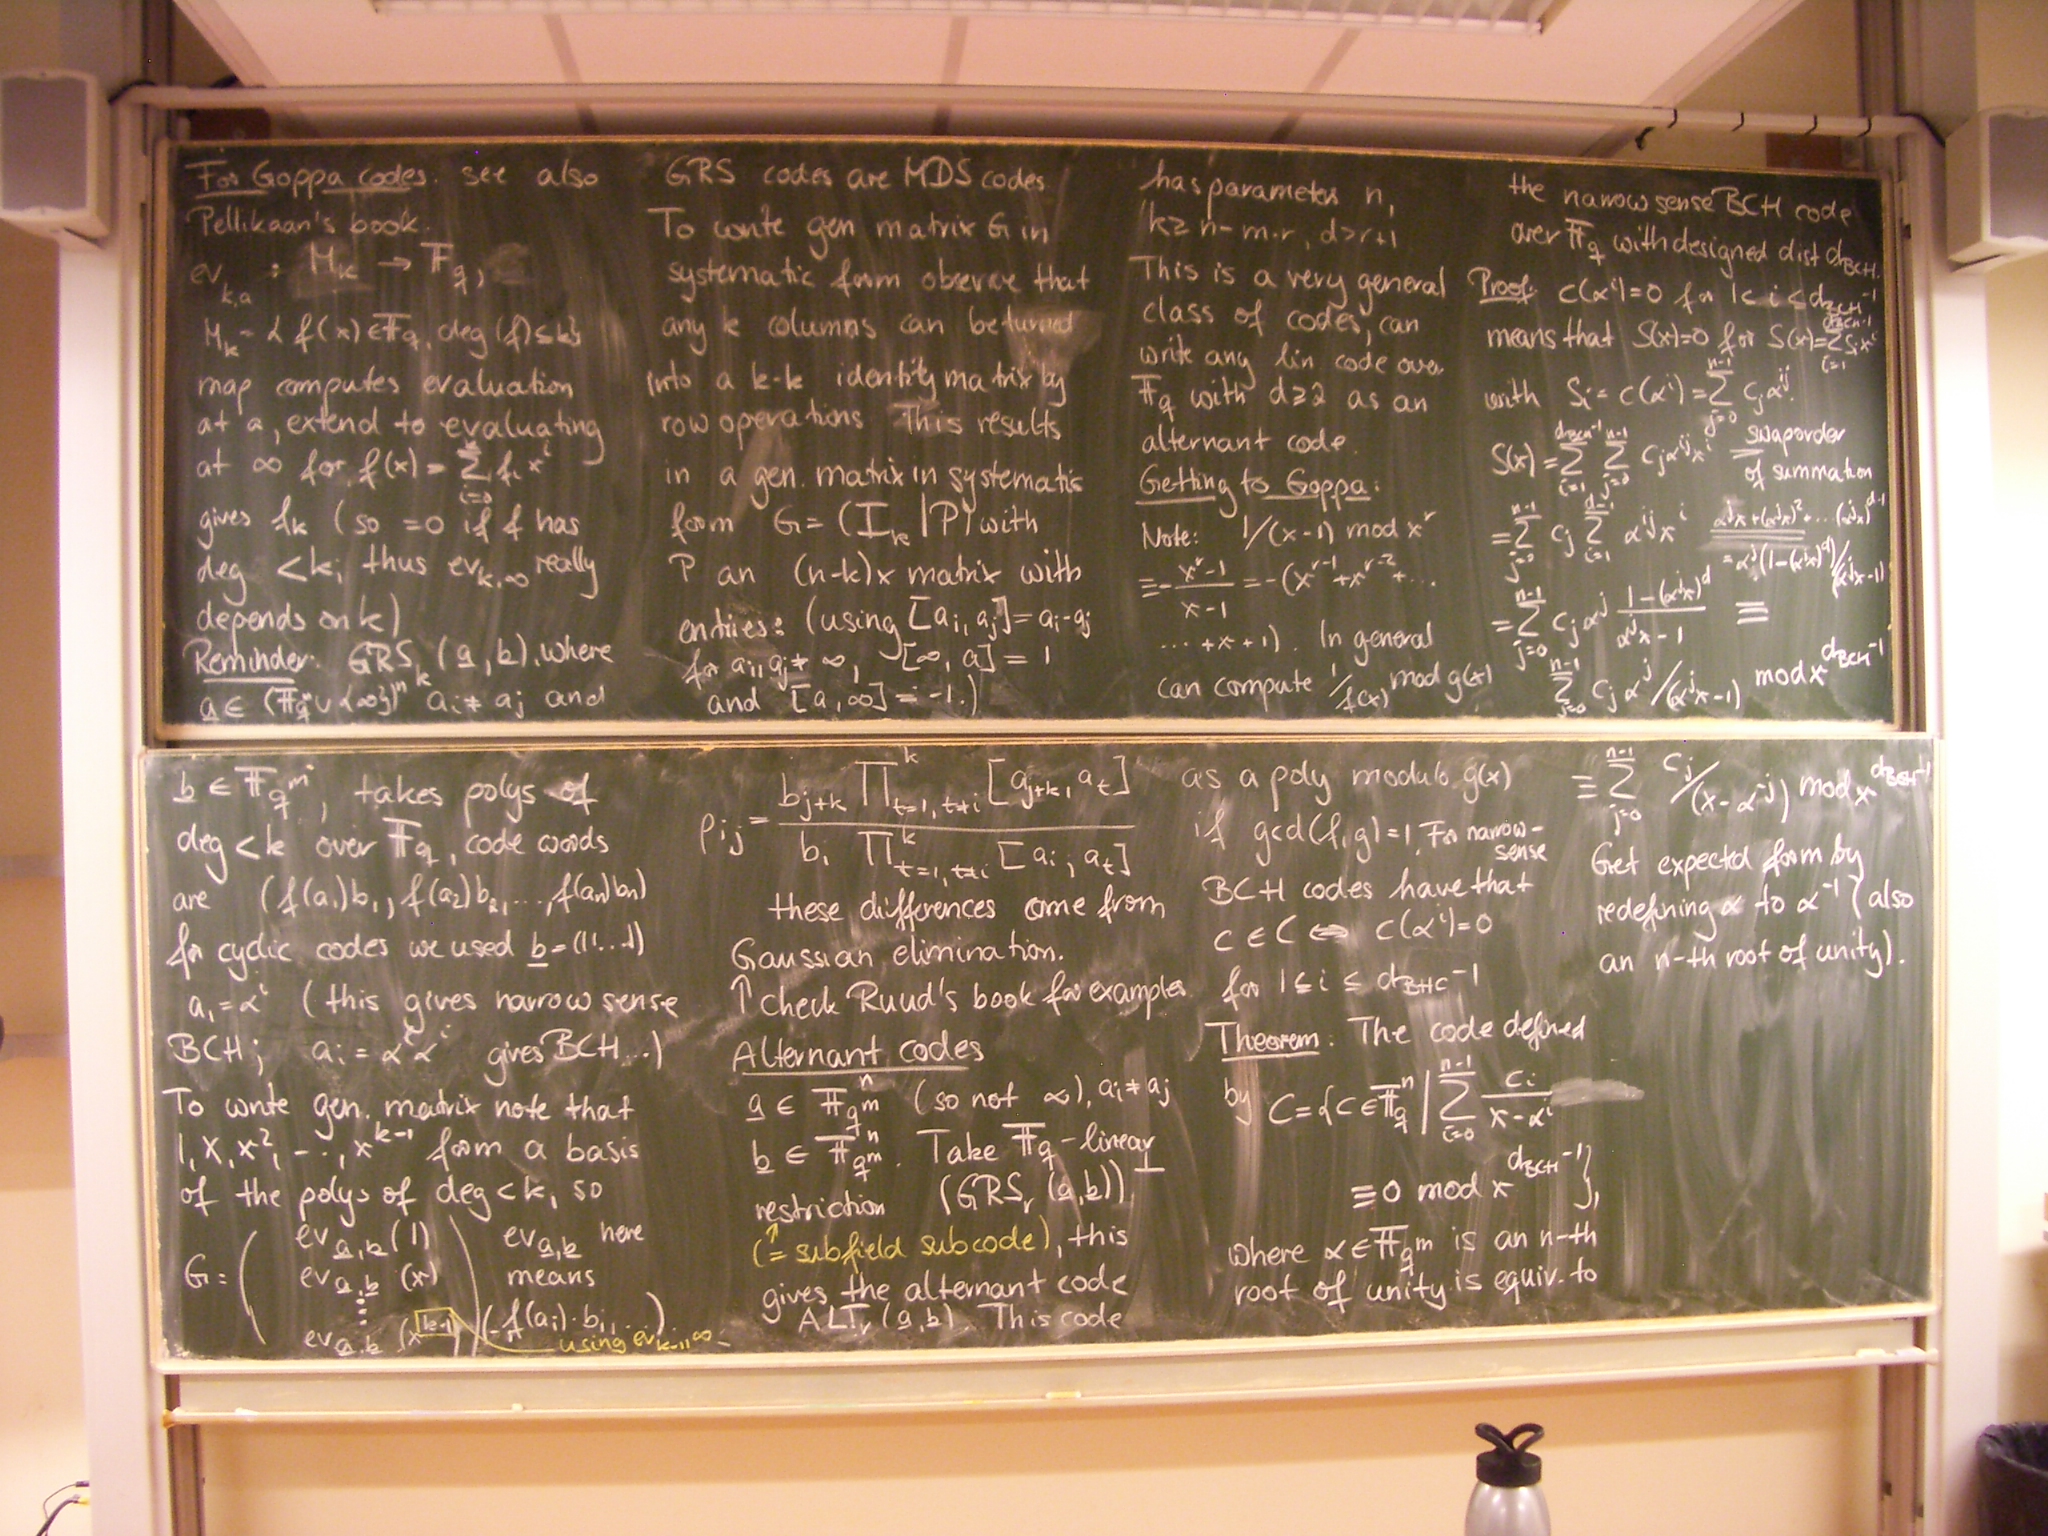 For Goppa codes: see also
Pellikaan's book.
ev_{k,a} : M_k → F_q,
M_k = {f(x) ∈ F_q, deg(f) ≤ k}
map computes evaluation
at a, extend to evaluating
at ∞ for f(x) = Σ_{i=0}^{k} f_i x^i
gives f_k (so =0 if f has
deg < k, thus ev_{k,∞} really
depends on k)
Reminder: GRS_k (a, b), where
a ∈ (F_{q^m} ∪ {∞})^n a_i ≠ a_j and
b ∈ F_{q^m}, takes polys of
deg < k over F_q, code words
are (f(a_1)b_1, f(a_2)b_2, ..., f(a_n)b_n)
for cyclic codes we used b = (11...1)
a_i = α^i (this gives narrow sense
BCH; a_i = α^l α^i gives BCH...)
To write gen. matrix note that
1, x, x^2, ..., x^{k-1} form a basis
of the polys of deg < k, so
G = ( ev_{a,b} (1) ) ev_{a,b} here
ev_{a,b} (x) means
⋮
ev_{a,b} (x^{k-1}) (..f(a_i)·b_i, ...).
using ev_{k-1,∞}
GRS codes are MDS codes
To write gen matrix G in
systematic form observe that
any k columns can be turned
into a k·k identity matrix by
row operations This results
in a gen. matrix in systematic
form G = (I_k | P) with
P an (n-k)× matrix with
entries: (using [a_i, a_j] = a_i - a_j
for a_i, a_j ≠ ∞, [∞, a] = 1
and [a, ∞] = -1.)
p_{ij} = b_{j+k} Π_{t=1, t≠i}^{k} [a_{j+k}, a_t] / b_i Π_{t=1, t≠i}^{k} [a_i, a_t]
these differences come from
Gaussian elimination.
↑ check Ruud's book for examples
Alternant codes
a ∈ F_{q^m}^n (so not ∞), a_i ≠ a_j
b ∈ F_{q^m}^n. Take F_q-linear
restriction (GRS_r (a, b))^⊥,
(↑= subfield subcode), this
gives the alternant code
ALT_r (a, b). This code
has parameters n,
k ≥ n - m·r, d > r+1
This is a very general
class of codes, can
write any lin code over
F_q with d ≥ 2 as an
alternant code.
Getting to Goppa:
Note: 1/(x-1) mod x^r
≡ - (x^r - 1)/(x - 1) = -(x^{r-1} + x^{r-2} + ...
... + x + 1). In general
can compute 1/f(x) mod g(x)
as a poly modulo g(x)
if gcd(f, g) = 1. For narrow-
sense
BCH codes have that
c ∈ C ⇔ c(α^i) = 0
for 1 ≤ i ≤ d_{BHC} - 1
Theorem: The code defined
by C = {c ∈ F_q^n | Σ_{i=0}^{n-1} c_i/(x - α^i)
≡ 0 mod x^{d_{BCH}-1}},
where α ∈ F_{q^m} is an n-th
root of unity is equiv. to
the narrow sense BCH code
over F_q with designed dist d_{BCH}.
Proof: c(α^i) = 0 for 1 ≤ i ≤ d_{BCH}-1
means that S(x)=0 for S(x) = Σ_{i=1}^{d_{BCH}-1} S_i x^i
with S_i = c(α^i) = Σ_{j=0}^{n-1} c_j α^{ij}.
S(x) = Σ_{i=1}^{d_{BCH}-1} Σ_{j=0}^{n-1} c_j α^{ij} x^i = swap order
of summation
= Σ_{j=0}^{n-1} c_j Σ_{i=1}^{d-1} α^{ij} x^i α^j x + (α^j x)^2 + ... (α^j x)^{d-1}
= α^j (1-(α^j x)^d)/(α^j x - 1)
= Σ_{j=0}^{n-1} c_j α^j (1-(α^j x)^d)/(α^j x - 1) ≡
Σ_{j=0}^{n-1} c_j α^j/(α^j x - 1) mod x^{d_{BCH}-1}
≡ Σ_{j=0}^{n-1} c_j/(x - α^{-j}) mod x^{d_{BCH}-1}
Get expected form by
redefining α to α^{-1} (also
an n-th root of unity).